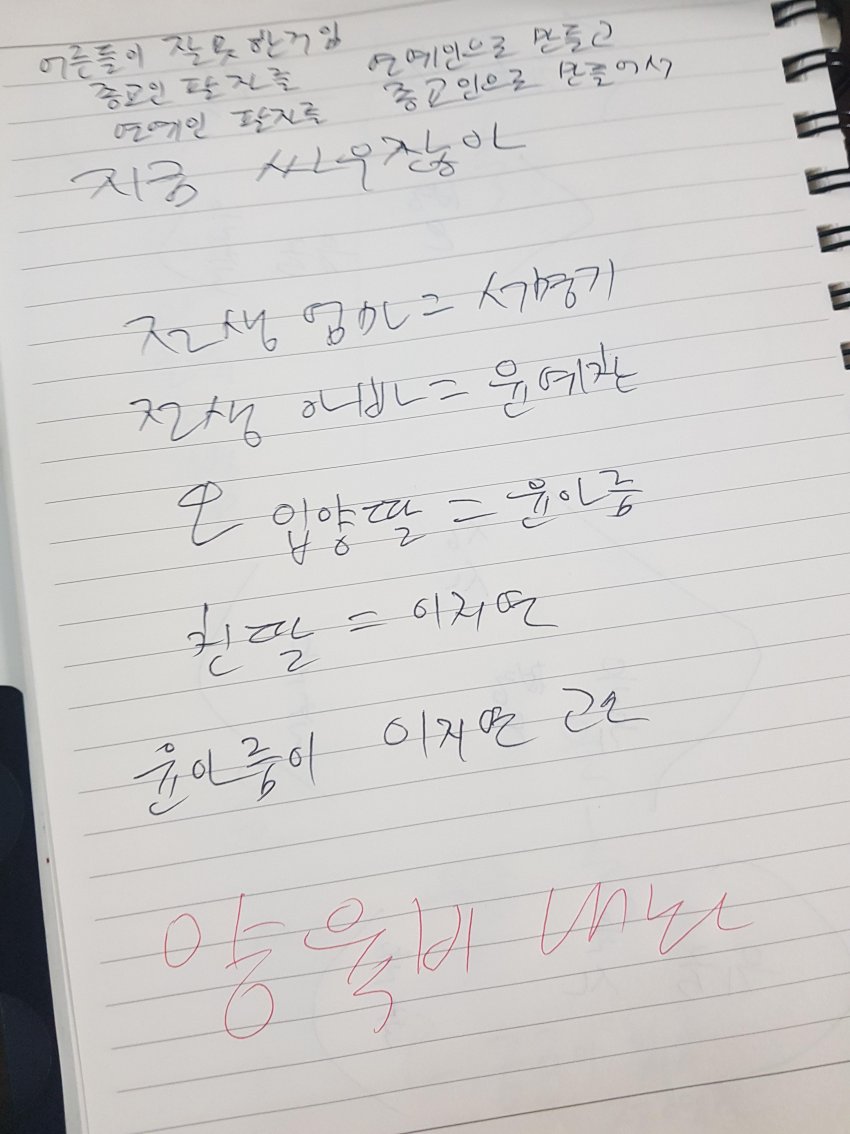 어른들이 잘못한거임
종교인 팔자를 연예인으로 만들고
연예인 팔자를 종교인으로 만들어서
지금 싸우잖아
전생 엄마 = 서명기
전생 아빠 = 윤예찬
입양딸 = 윤아름
친딸 = 이지연
윤아름이 이지연
양육비 내라